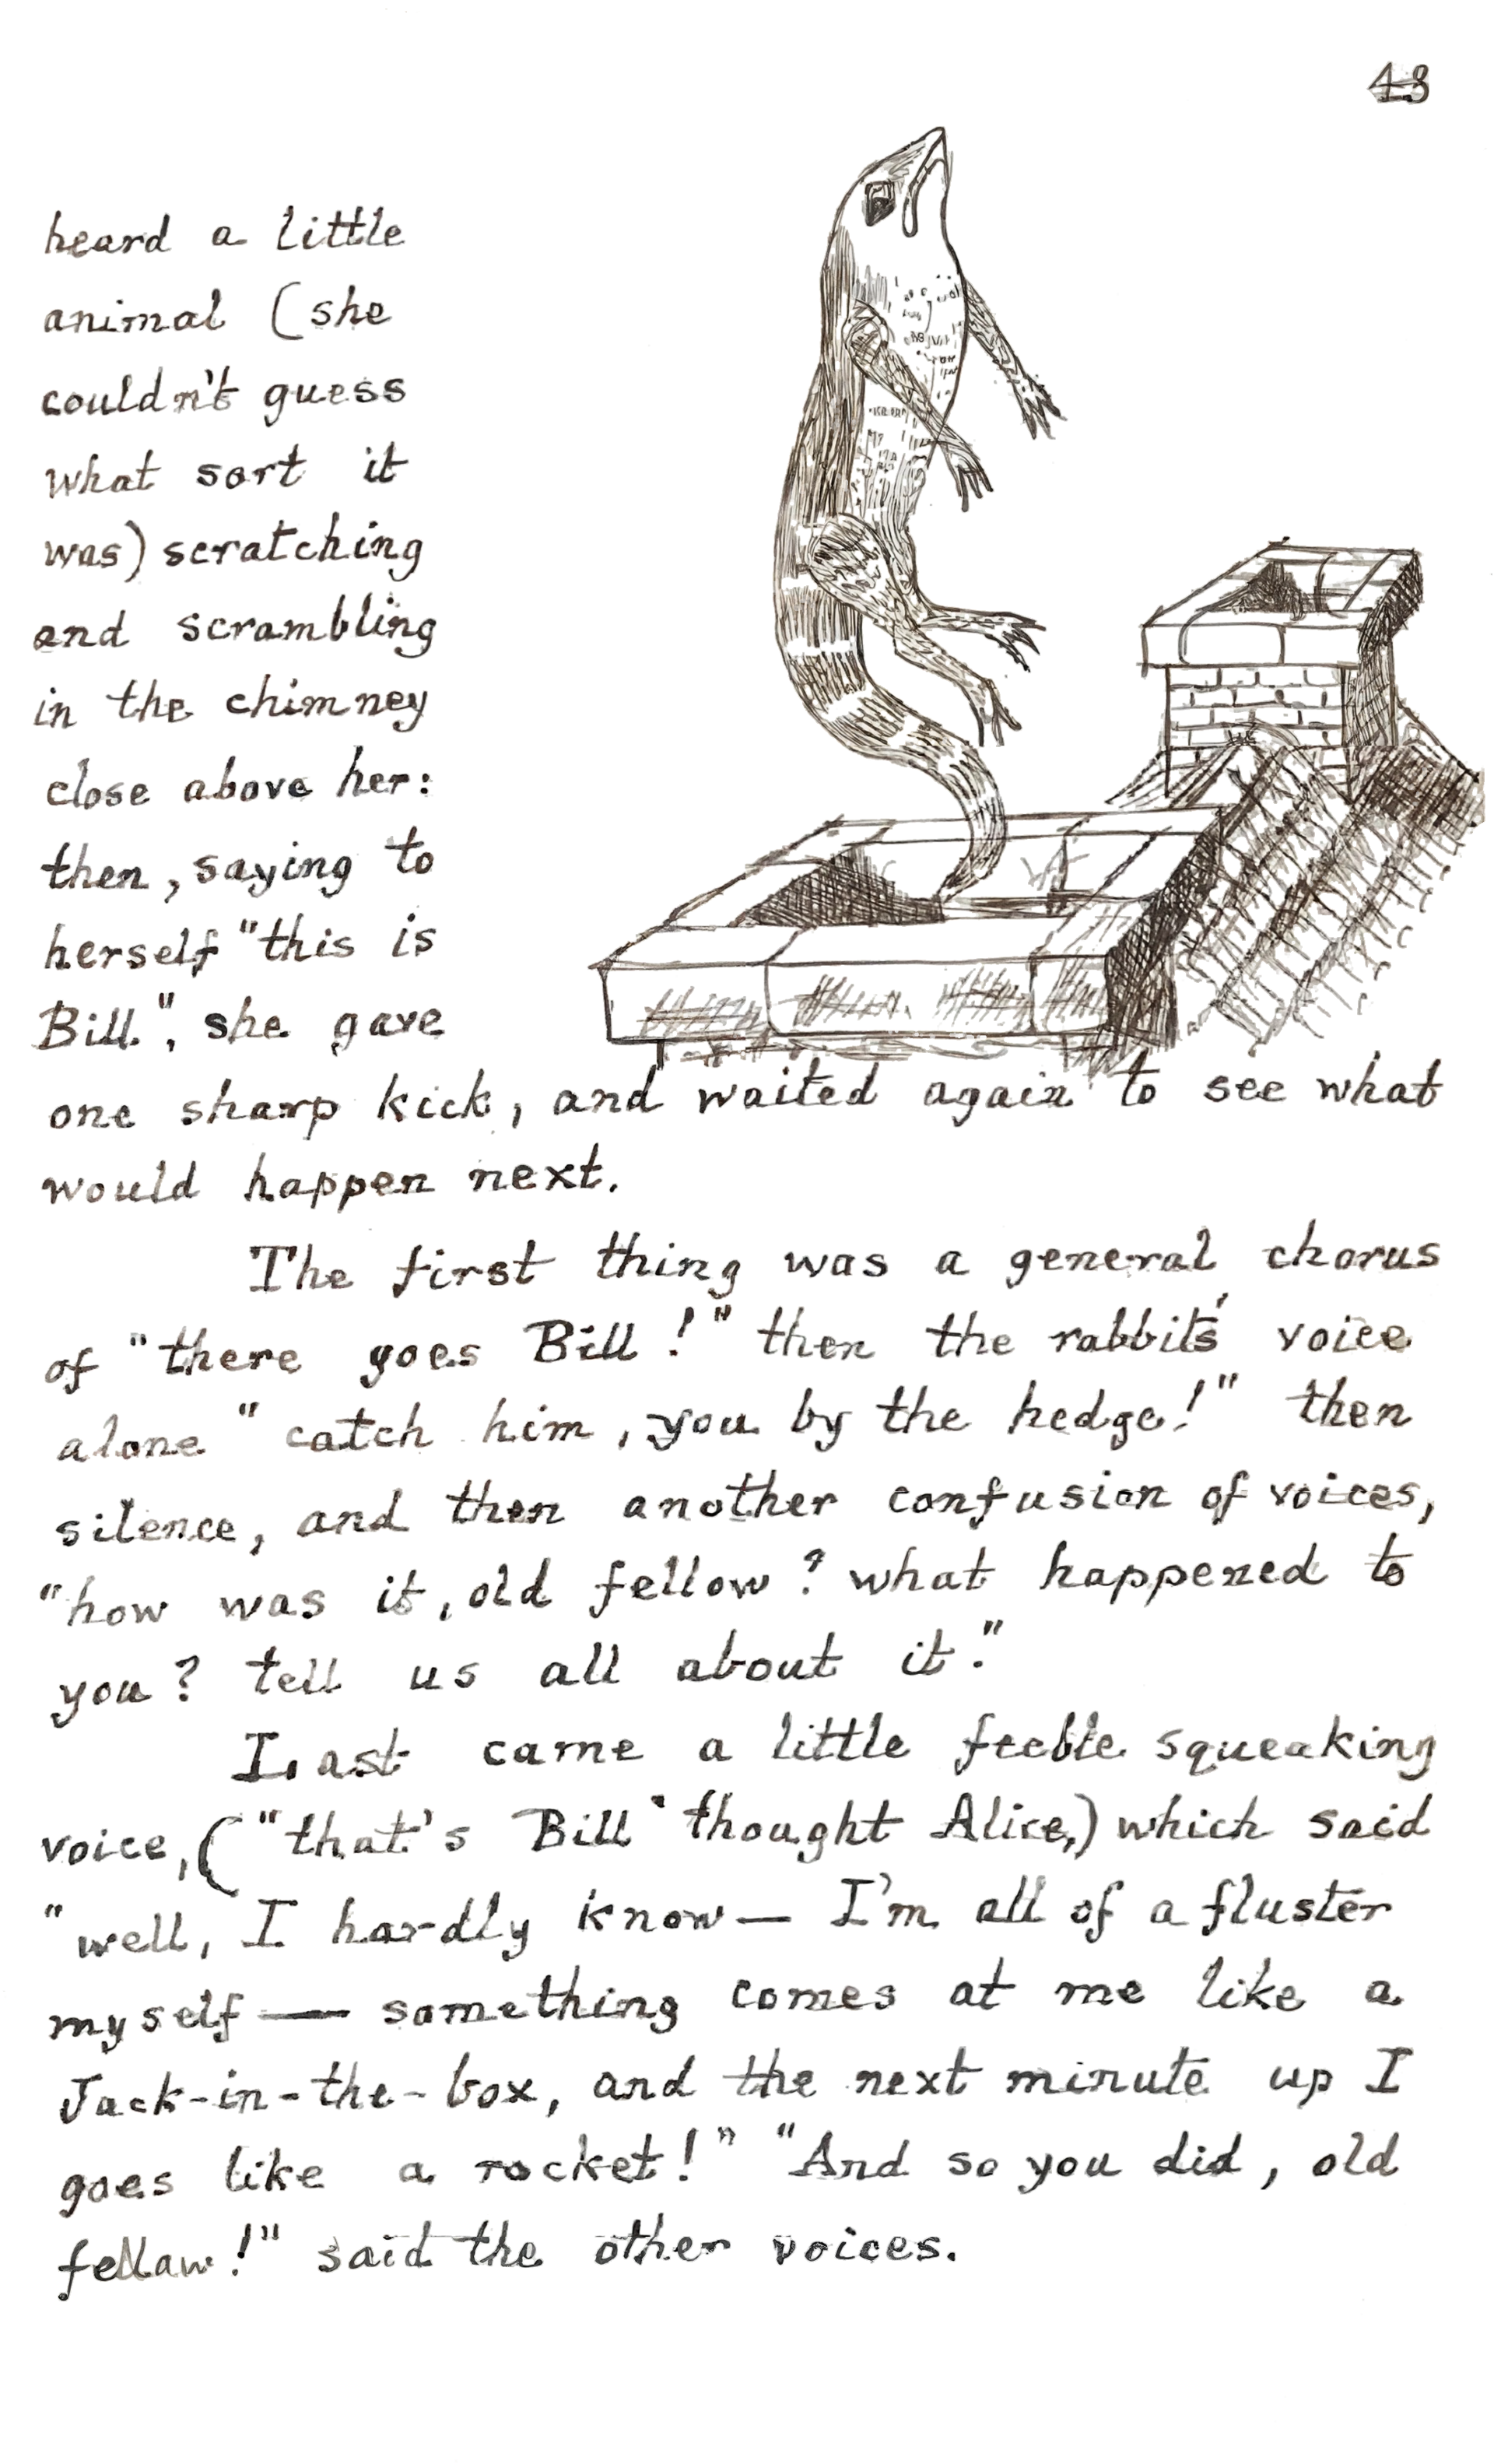 43
heard a little
animal (she
couldn't guess
what sort it
was) scratching
and scrambling
in the chimney
close above her:
then, saying to
herself "this is
Bill", she gave
one sharp kick, and waited again to see what
would happen next.
The first thing was a general chorus
of "there goes Bill!" then the rabbit's voice
alone "catch him, you by the hedge!" then
silence, and then another confusion of voices,
"how was it, old fellow? what happened to
you? tell us all about it."
Last came a little feeble squeaking
voice, ("that's Bill" thought Alice,) which said
"well, I hardly know — I'm all of a fluster
myself — something comes at me like a
Jack-in-the-box, and the next minute up I
goes like a rocket!" "And so you did, old
fellow!" said the other voices.